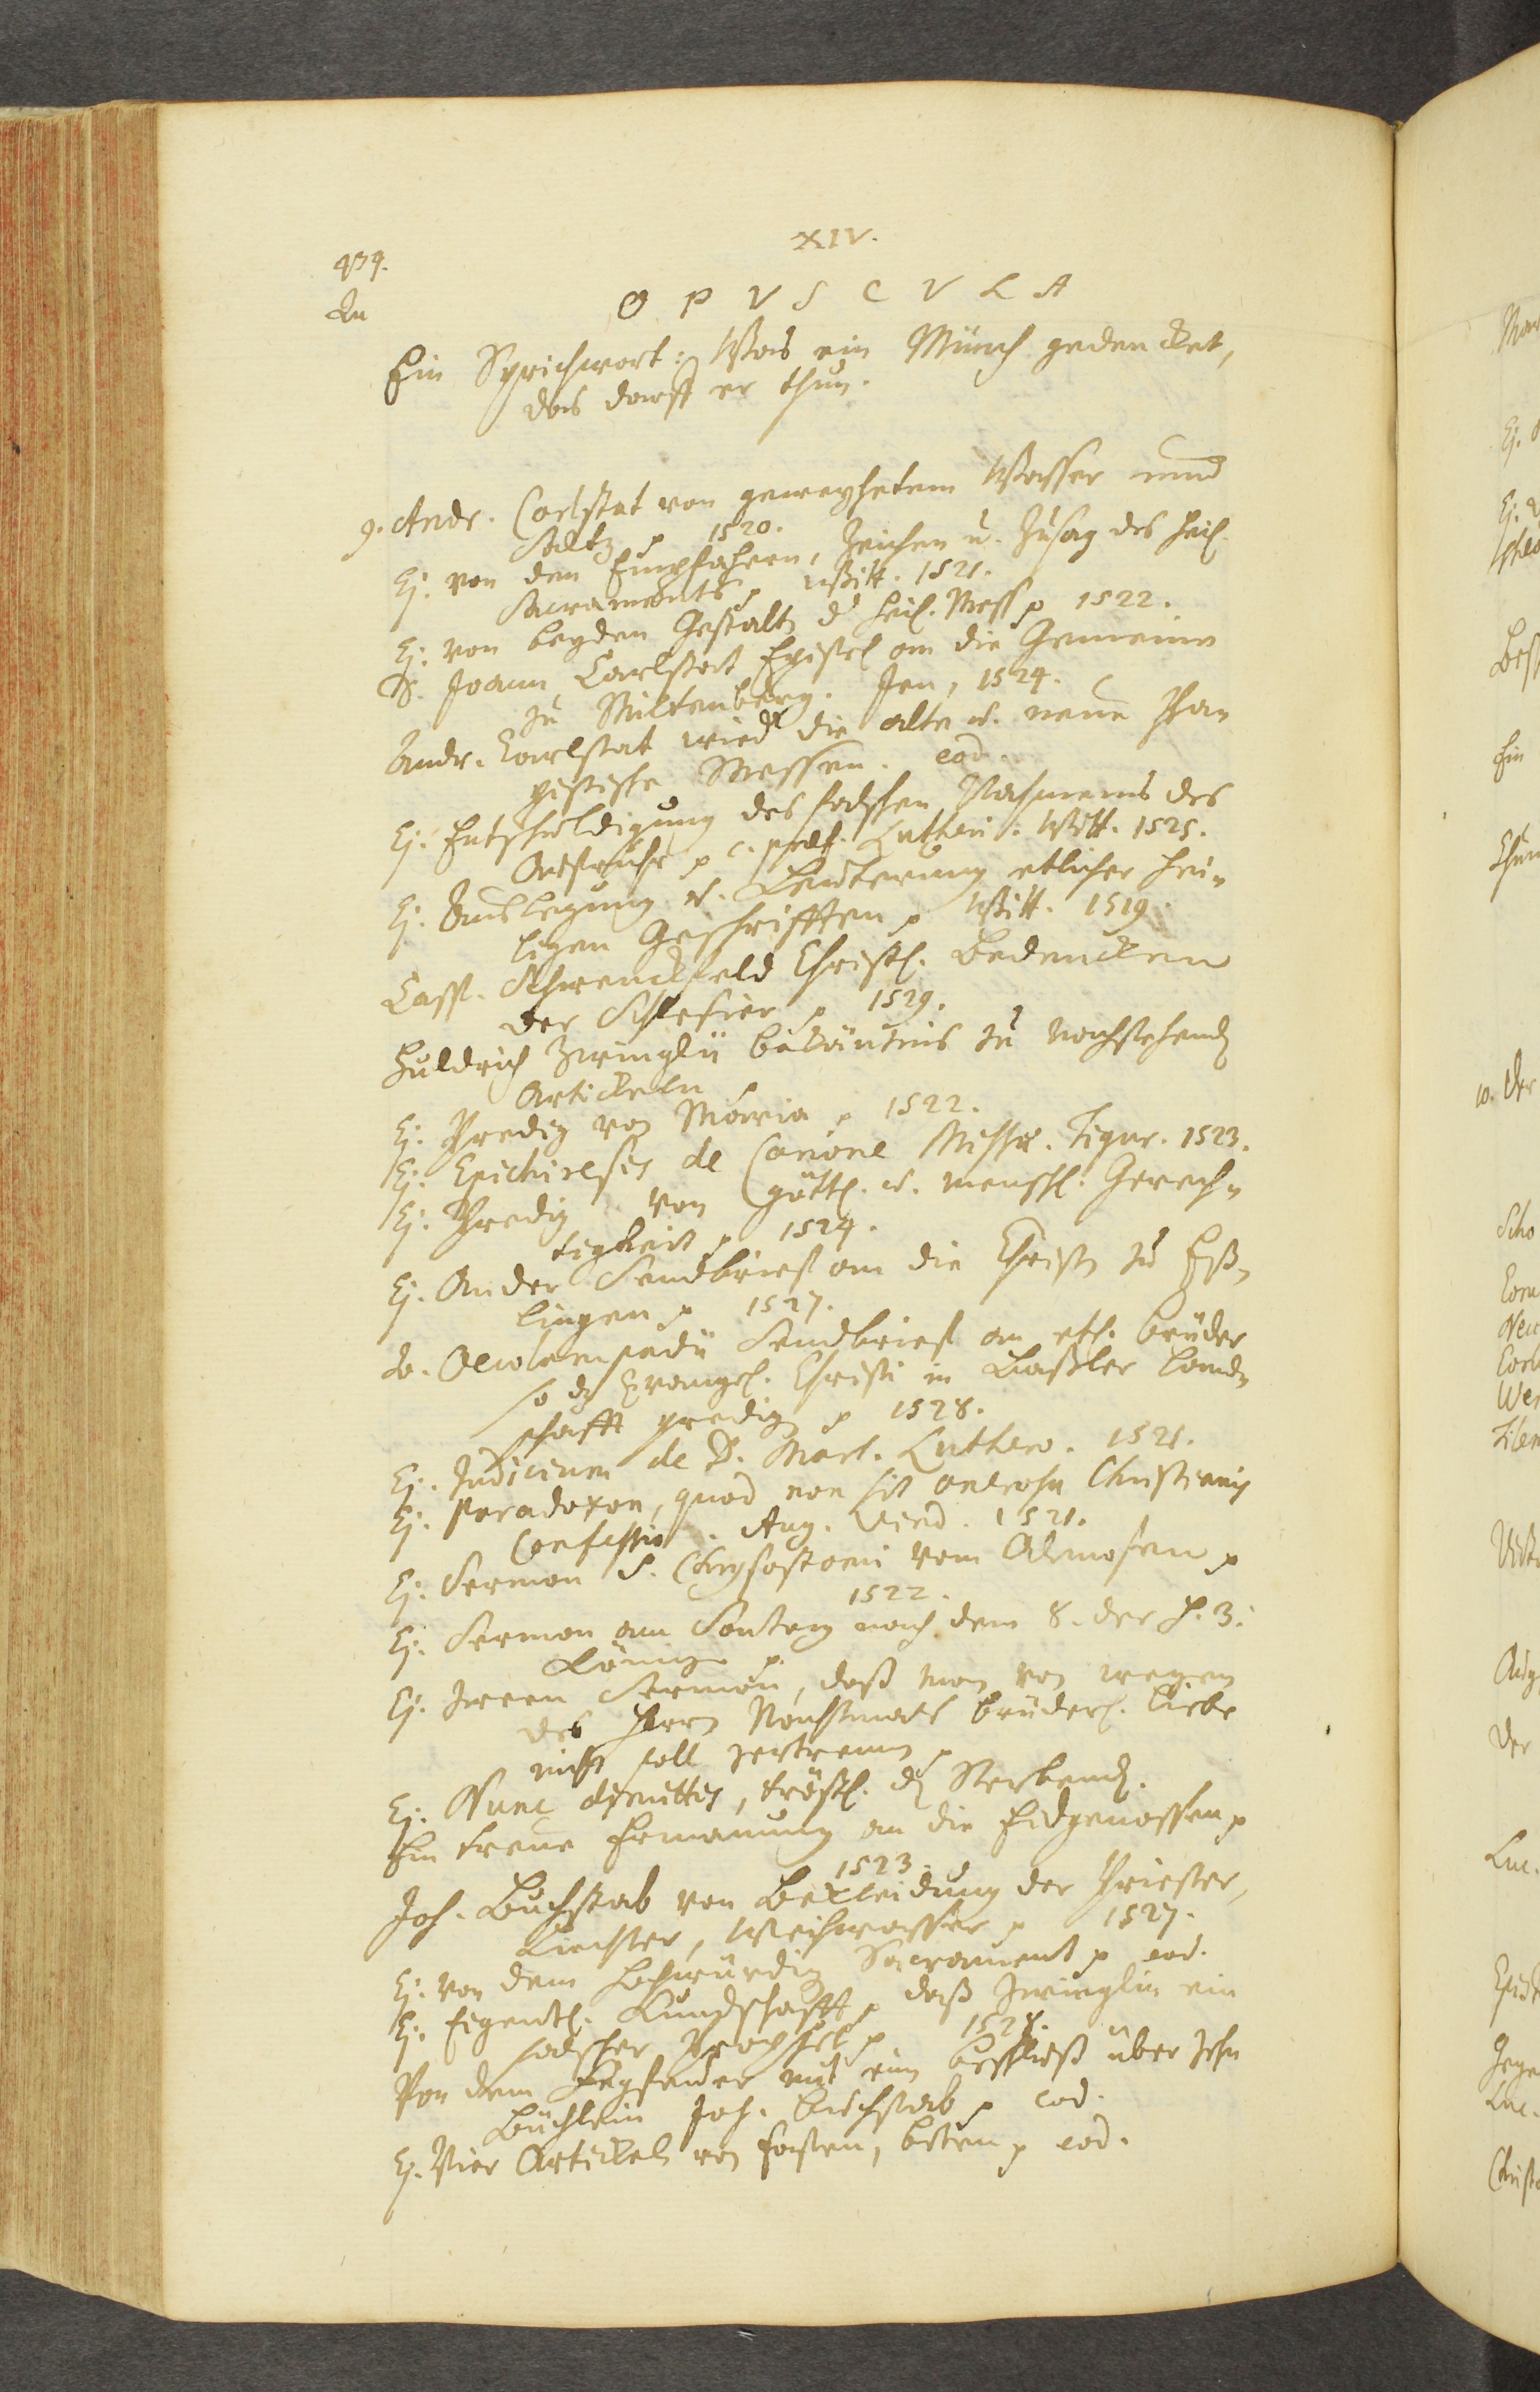 XIV.
439.
Qu
O P V S C V L A
Ein Sprichwort: Was ein Münch gedencket,
das darff er thun.
9. Andr. Carlstat von geweyhetem Wasser unnd
Saltz p 1520.
Ej. von den Empfahern, Zeichen u. Zusag des heil.
Sacraments p Witt. 1521.
Ej. von beyden Gestaltn d heil. Mess p 1522.
D. Joann Carlstat Epistel an die Gemeine
zu Miltenberg. Jen, 1524.
Andr. Carlstat wieder die alte u. neue Pa=
pistische Messen. eod.
Ej. Entschuldigung des falschen Nahmens des
Auffruhr p c. præf. Lutheri. Witt. 1525.
Ej. Auslegung u. Leuterung etlicher hei=
ligen Geschrifften p Witt. 1519.
Casp. Schwenckfeld Christl. Bedencken
der Schlesier p 1529.
Huldrich Zwinglii bekäntnis zu nachstehend
Artickeln p
Ej. Predig von Maria p 1522.
Ej. Epichiresis de Canone Missæ. Tigur. 1523.
Ej. Predig von göttl. u. menschl. Gerech=
tigkeit p 1524.
Ej. Ander Sendbrieff an die Christn zu Eß=
lingen p 1527.
Jo. Oecolampadii Sendbrieff an etl. brüder
so dz Evangel. Christi in Baßler Land=
schafft predign p 1528.
Ej. Judicium de D. Mart. Luthero. 1521.
Ej. Paradoxon, quod non sit onerosa Christianis
Confessio. Aug. Vind. 1521.
Ej. Sermon S. Chrysostomi vom Almosen p
1522.
Ej. Sermon am Sontag nach dem 8. der H. 3.
Könige p
Ej. zween Sermon, daß man von wegen
des Herrn Nachtmals brüderl. Liebe
nicht soll zertrennen p
Ej. Nunc dimittis, tröstl. d Sterbend.
Ein treue Ermanung an die Eidgenossen p
1523.
Joh. Buchstab von Bekleidung der Priester,
Liechter, Weihwasser p 1527.
Ej. von dem hochwürdig Sacrament p eod.
Ej. Eigentl. Kundschafft, daß Zwinglin ein
falscher Prophet p 1528.
Von dem Fegfeuer mit eim beschluß über zehn
Büchlein Joh. buchstab p eod.
Ej. Vier Artickel von fasten, beten p eod.